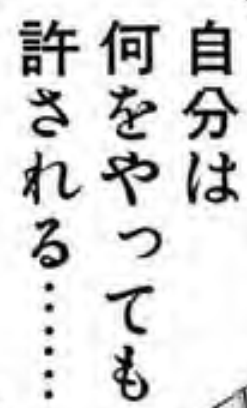 自分は
何をやっても
許される……